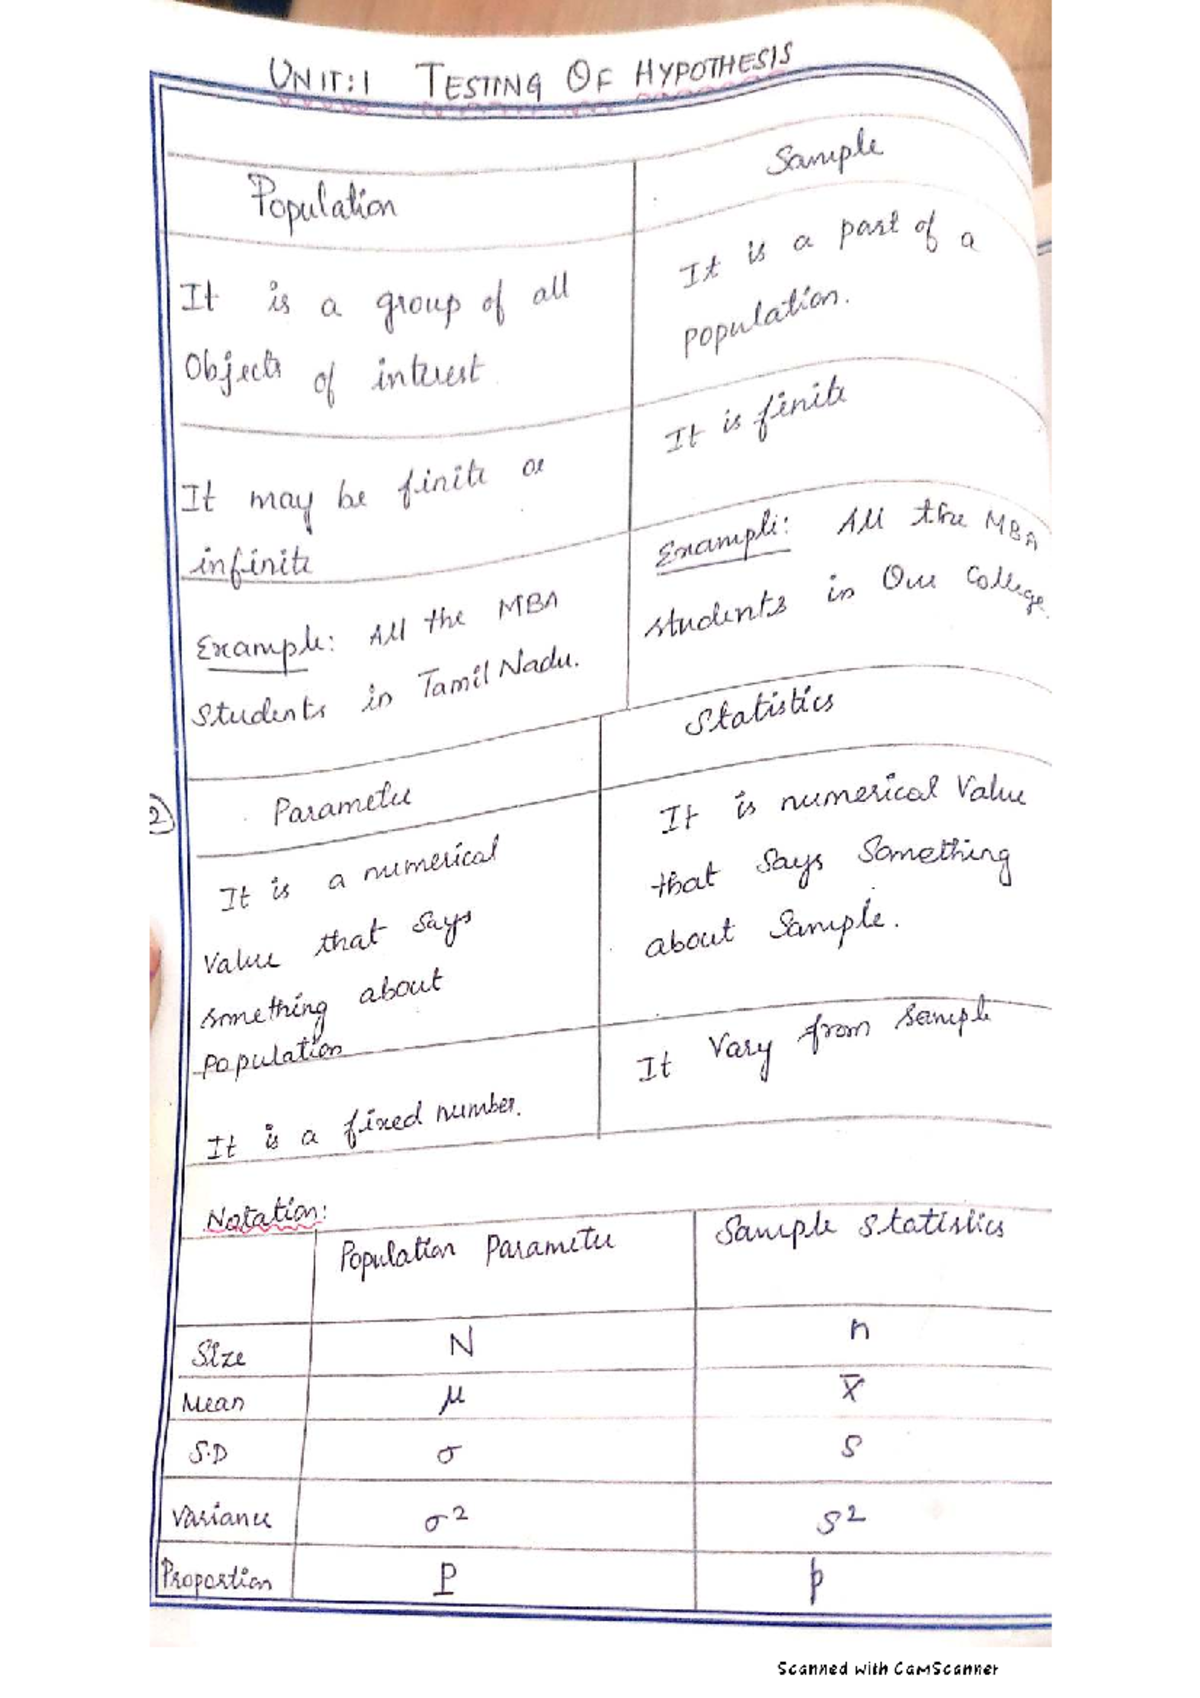 UNIT:1 TESTING OF HYPOTHESIS
Population
Sample
It is a group of all
Objects of interest
It is a part of a
population.
It may be finite or
infinite
It is finite
Example: All the MBA
students in Tamil Nadu.
Example: All the MBA
students in Our College.
2)
Parameter
Statistics
It is a numerical
Value that says
something about
population
It is numerical Value
that says Something
about Sample.
It is a fixed number.
It Vary from sample
Notation:
Population Parameter
Sample Statistics
Size N n
Mean μ x̄
S.D σ S
Variance σ² S²
Proportion P p
Scanned with CamScanner